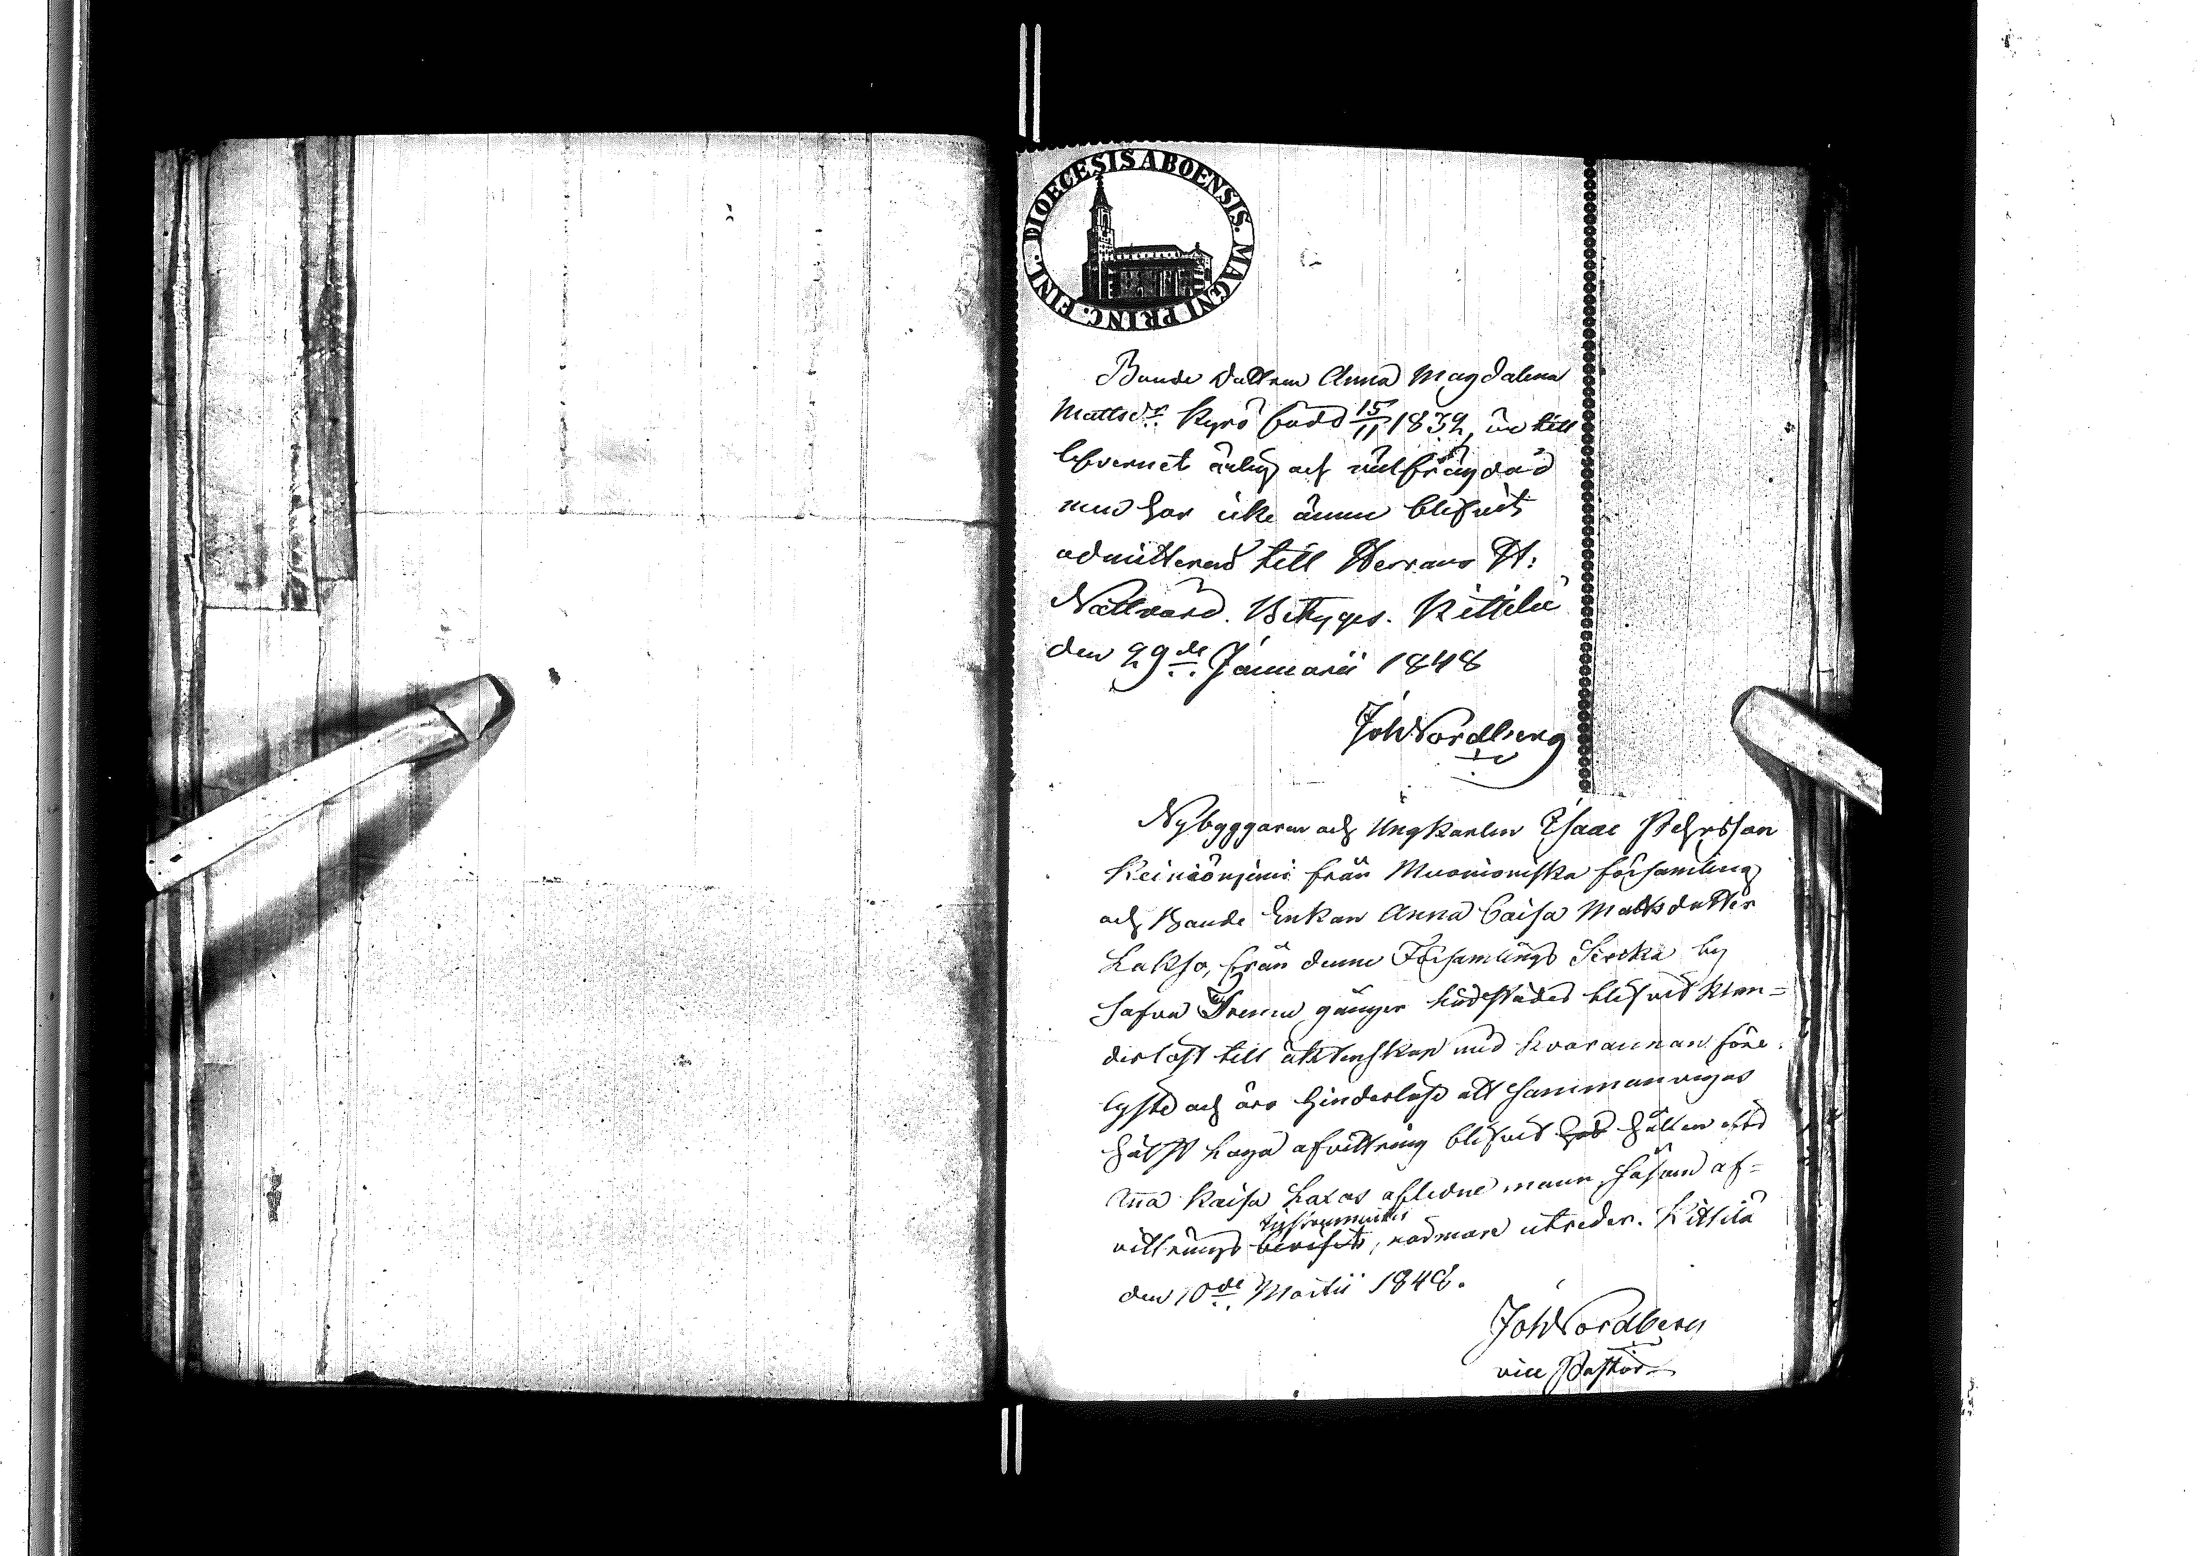 DIOECESIS ABOENSIS. MAGNI PRINC. FINL.
Bonde dottren Anna Magdalena
Mattsdr Kyrö född 15/11 1832, är till
lefvernet ärlig och väl frägdad
men har icke ännu blifvit
admitterad till Herrans H:
Nattvard. Betyges. Kittilä
den 29de Januarii 1848
Joh Nordberg
Nybyggaren och Ungkarlen Isaac Pehrsson
Keiniönjemi från Muonioniska församling
och Bonde Enkan Anna Caisa Matsdotter
Lakso, från denne Församlings Sirkka by
hafva Trenne gånger härstädes blifvit klan=
derlöst till äktenskap med hvarannan före
lyste och äro hinderlöse att sammanvigas
hälst laga afvittring blifvit hållen efter
Anna Kaisa Laxos aflidne mann, såsom af=
vittrings instrumentet, närmare utreder. Kittilä
den 10de Martii 1848.
Joh Nordberg
vice Pastor